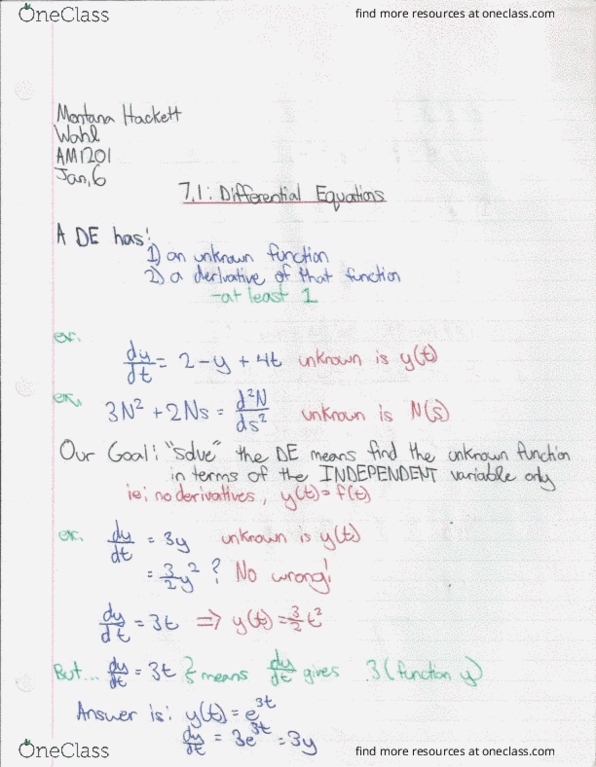 OneClass find more resources at oneclass.com
Montana Hackett
Wahl
AM1201
Jan, 6
7.1: Differential Equations
A DE has:
1) an unknown function
2) a derivative of that function
-at least 1
ex.
dy/dt = 2 - y + 4t unknown is y(t)
ex.
3N² + 2Ns = d²N/ds² unknown is N(s)
Our Goal: "solve" the DE means find the unknown function
in terms of the INDEPENDENT variable only
ie; no derivatives, y(t) = f(t)
ex. dy/dt = 3y unknown is y(t)
= 3/2 y² ? No wrong!
dy/dt = 3t ⇒ y(t) = 3/2 t²
But... dy/dt = 3t } means dy/dt gives 3(function y)
Answer is: y(t) = e^3t
dy/dt = 3e^3t = 3y
OneClass find more resources at oneclass.com